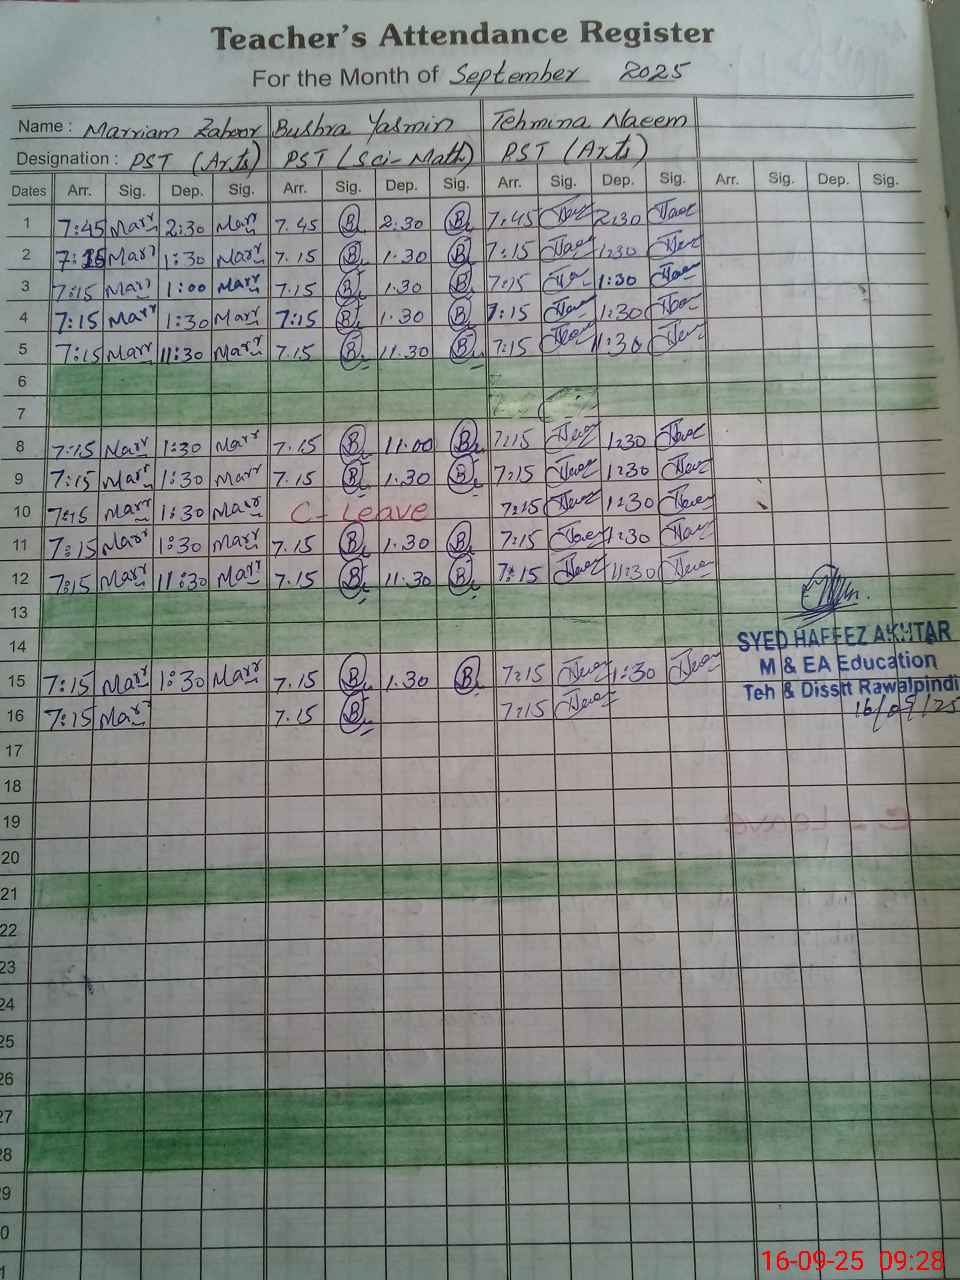 Teacher's Attendance Register
For the Month of September 2025
Name : Marriam Zahoor Bushra Yasmin Tehmina Naeem
Designation : PST (Arts) PST (Sci-Math) PST (Arts)
Dates Arr. Sig. Dep. Sig. Arr. Sig. Dep. Sig. Arr. Sig. Dep. Sig. Arr. Sig. Dep. Sig.
1 7:45 Marr 2:30 Marr 7.45 B 2:30 B 7:45 2:30
2 7:15 Marr 1:30 Marr 7.15 B 1.30 B 7:15 1:30
3 7:15 Marr 1:00 Marr 7.15 B 1.30 B 7:15 1:30
4 7:15 Marr 1:30 Marr 7:15 B 1.30 B 7:15 1:30
5 7:15 Marr 11:30 Marr 7.15 B 11.30 B 7:15 11:30
6
7
8 7:15 Marr 1:30 Marr 7.15 B 11.00 B 7:15 1:30
9 7:15 Marr 1:30 Marr 7.15 B 1.30 B 7:15 1:30
10 7:15 Marr 1:30 Marr C-Leave 7:15 1:30
11 7:15 Marr 1:30 Marr 7.15 B 1.30 B 7:15 1:30
12 7:15 Marr 11:30 Marr 7.15 B 11.30 B 7:15 11:30
13
14
SYED HAFEEZ AKHTAR
M & EA Education
15 7:15 Marr 1:30 Marr 7.15 B 1.30 B 7:15 1:30
Teh & Disstt Rawalpindi
16 7:15 Marr 7.15 B 7:15
16/09/25
17
18
19
20
21
22
23
24
25
26
27
28
29
0
1
16-09-25 09:28